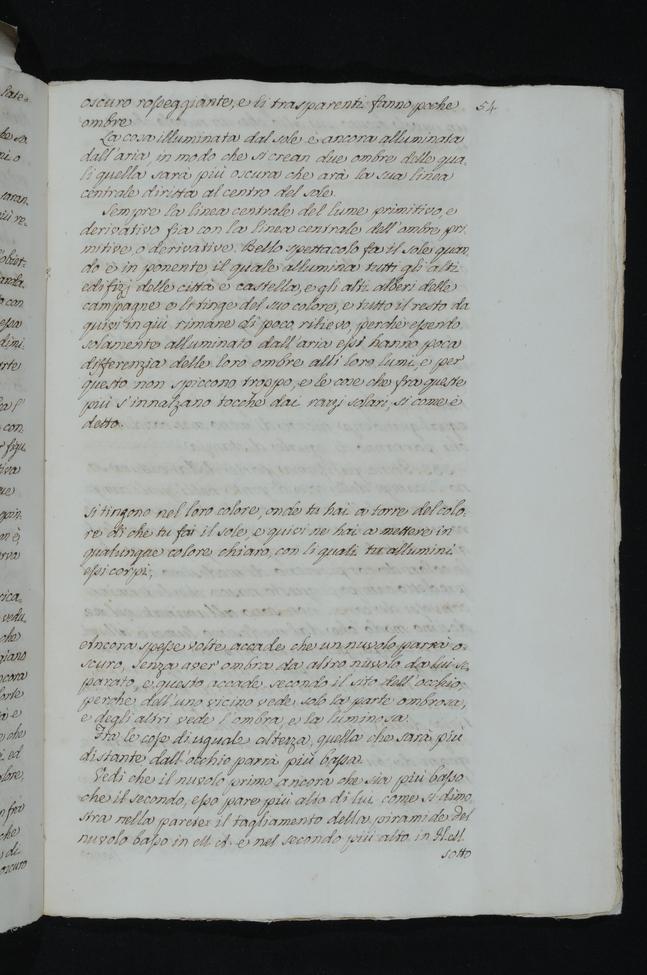 oscuro rosseggiante, e li trasparenti fanno poche
54
ombre
La cosa illuminata dal sole è ancora alluminata
dall'aria, in modo che si crean due ombre delle qua,
li quella sarà più oscura che arà la sua linea
centrale diritta al centro del sole.
Sempre la linea centrale del lume primitivo, e
derivativo fia con la linea centrale dell'ombre pri,
mitive, o derivative. Bello spettacolo fa il sole quan,
do è in ponente, il quale allumina tutti gli alti
edifizj delle città e castella, e gli alti alberi delle
campagne e li tinge del suo colore, e tutto il resto da
quivi in giù rimane di poco, rilievo, perchè essendo
solamente alluminato dall'aria essi hanno poca
differenzia delle loro ombre alli loro lumi, e per
questo non spiccono troppo, e le cose che fra queste
più s'innalzano tocche dai razj solari, si come è
detto.
si tingono nel loro colore, onde tu hai a torre del colo,
re di che tu fai il sole, e quivi ne hai a mettere in
qualunque colore chiaro, con li quali tu allumini
essi corpi;
Ancora spesse volte accade che un nuvolo parrà o,
scuro, senza aver ombra da altro nuvolo da lui se,
parato, e questo accade secondo il sito dell'occhio,
perche dell'uno vicino vede solo la parte ombrosa,
e degli altri vede l'ombra e la luminosa.
Fra le cose di uguale altezza, quella che sarà più
distante dall'occhio parrà più bassa.
Vedi che il nuvolo primo ancora che sia più basso
che il secondo, esso pare più alto di lui, come si dimo,
stra nella pariete il tagliamento della piramide del
nuvolo basso in M. A. è nel secondo più alto in N. M.
sotto